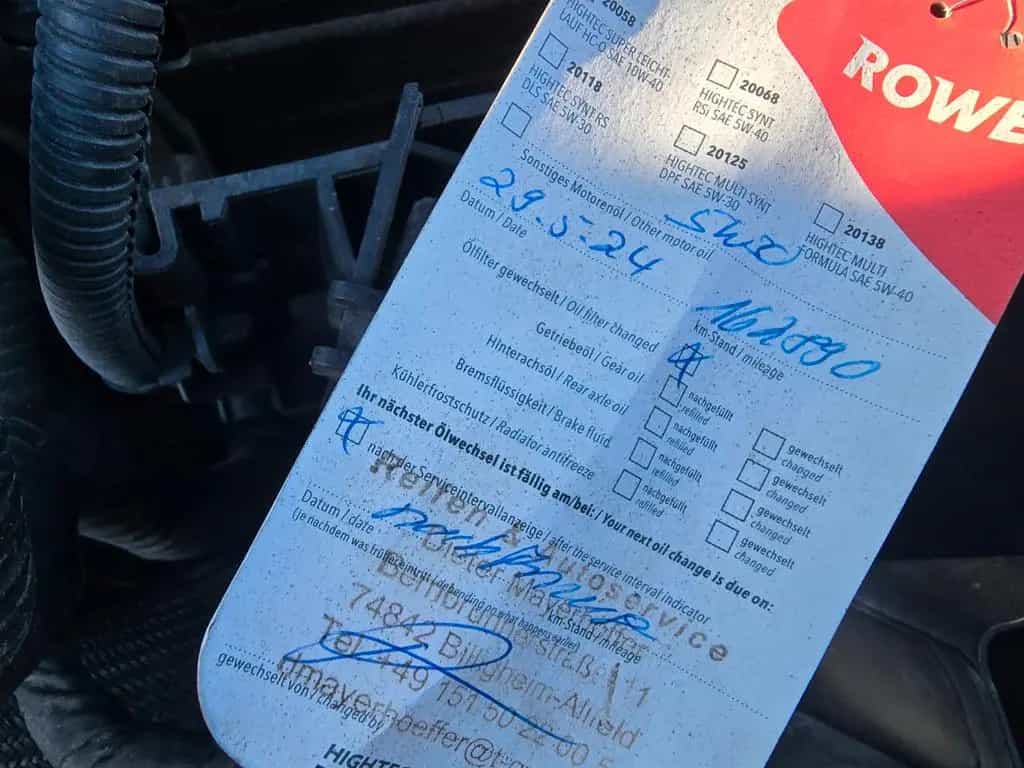 ROWE
20058
HIGHTEC SUPER LEICHT-
LAUF HC-O SAE 10W-40
20118
HIGHTEC SYNT RS
DLS SAE 5W-30
20068
HIGHTEC SYNT
RSi SAE 5W-40
20125
HIGHTEC MULTI SYNT
DPF SAE 5W-30
20138
HIGHTEC MULTI
FORMULA SAE 5W-40
Sonstiges Motorenöl / Other motor oil
29.5-24
Datum / Date
km-Stand / mileage
Ölfilter gewechselt / Oil filter changed
Getriebeöl / Gear oil nachgefüllt gewechselt
refilled changed
Hinterachsöl / Rear axle oil nachgefüllt gewechselt
refilled changed
Bremsflüssigkeit / Brake fluid nachgefüllt gewechselt
refilled changed
Kühlerfrostschutz / Radiator antifreeze nachgefüllt gewechselt
refilled changed
Ihr nächster Ölwechsel ist fällig am/bei: / Your next oil change is due on:
nach der Serviceintervallanzeige / after the service interval indicator
Reifen & Autoservice
Dieter
Datum / date km-Stand / mileage
(je nachdem was früher eintritt / depending on what happens earlier)
74842 Billigheim-Allfeld
Tel +49 151 50
gewechselt von / changed by
HIGHTEC